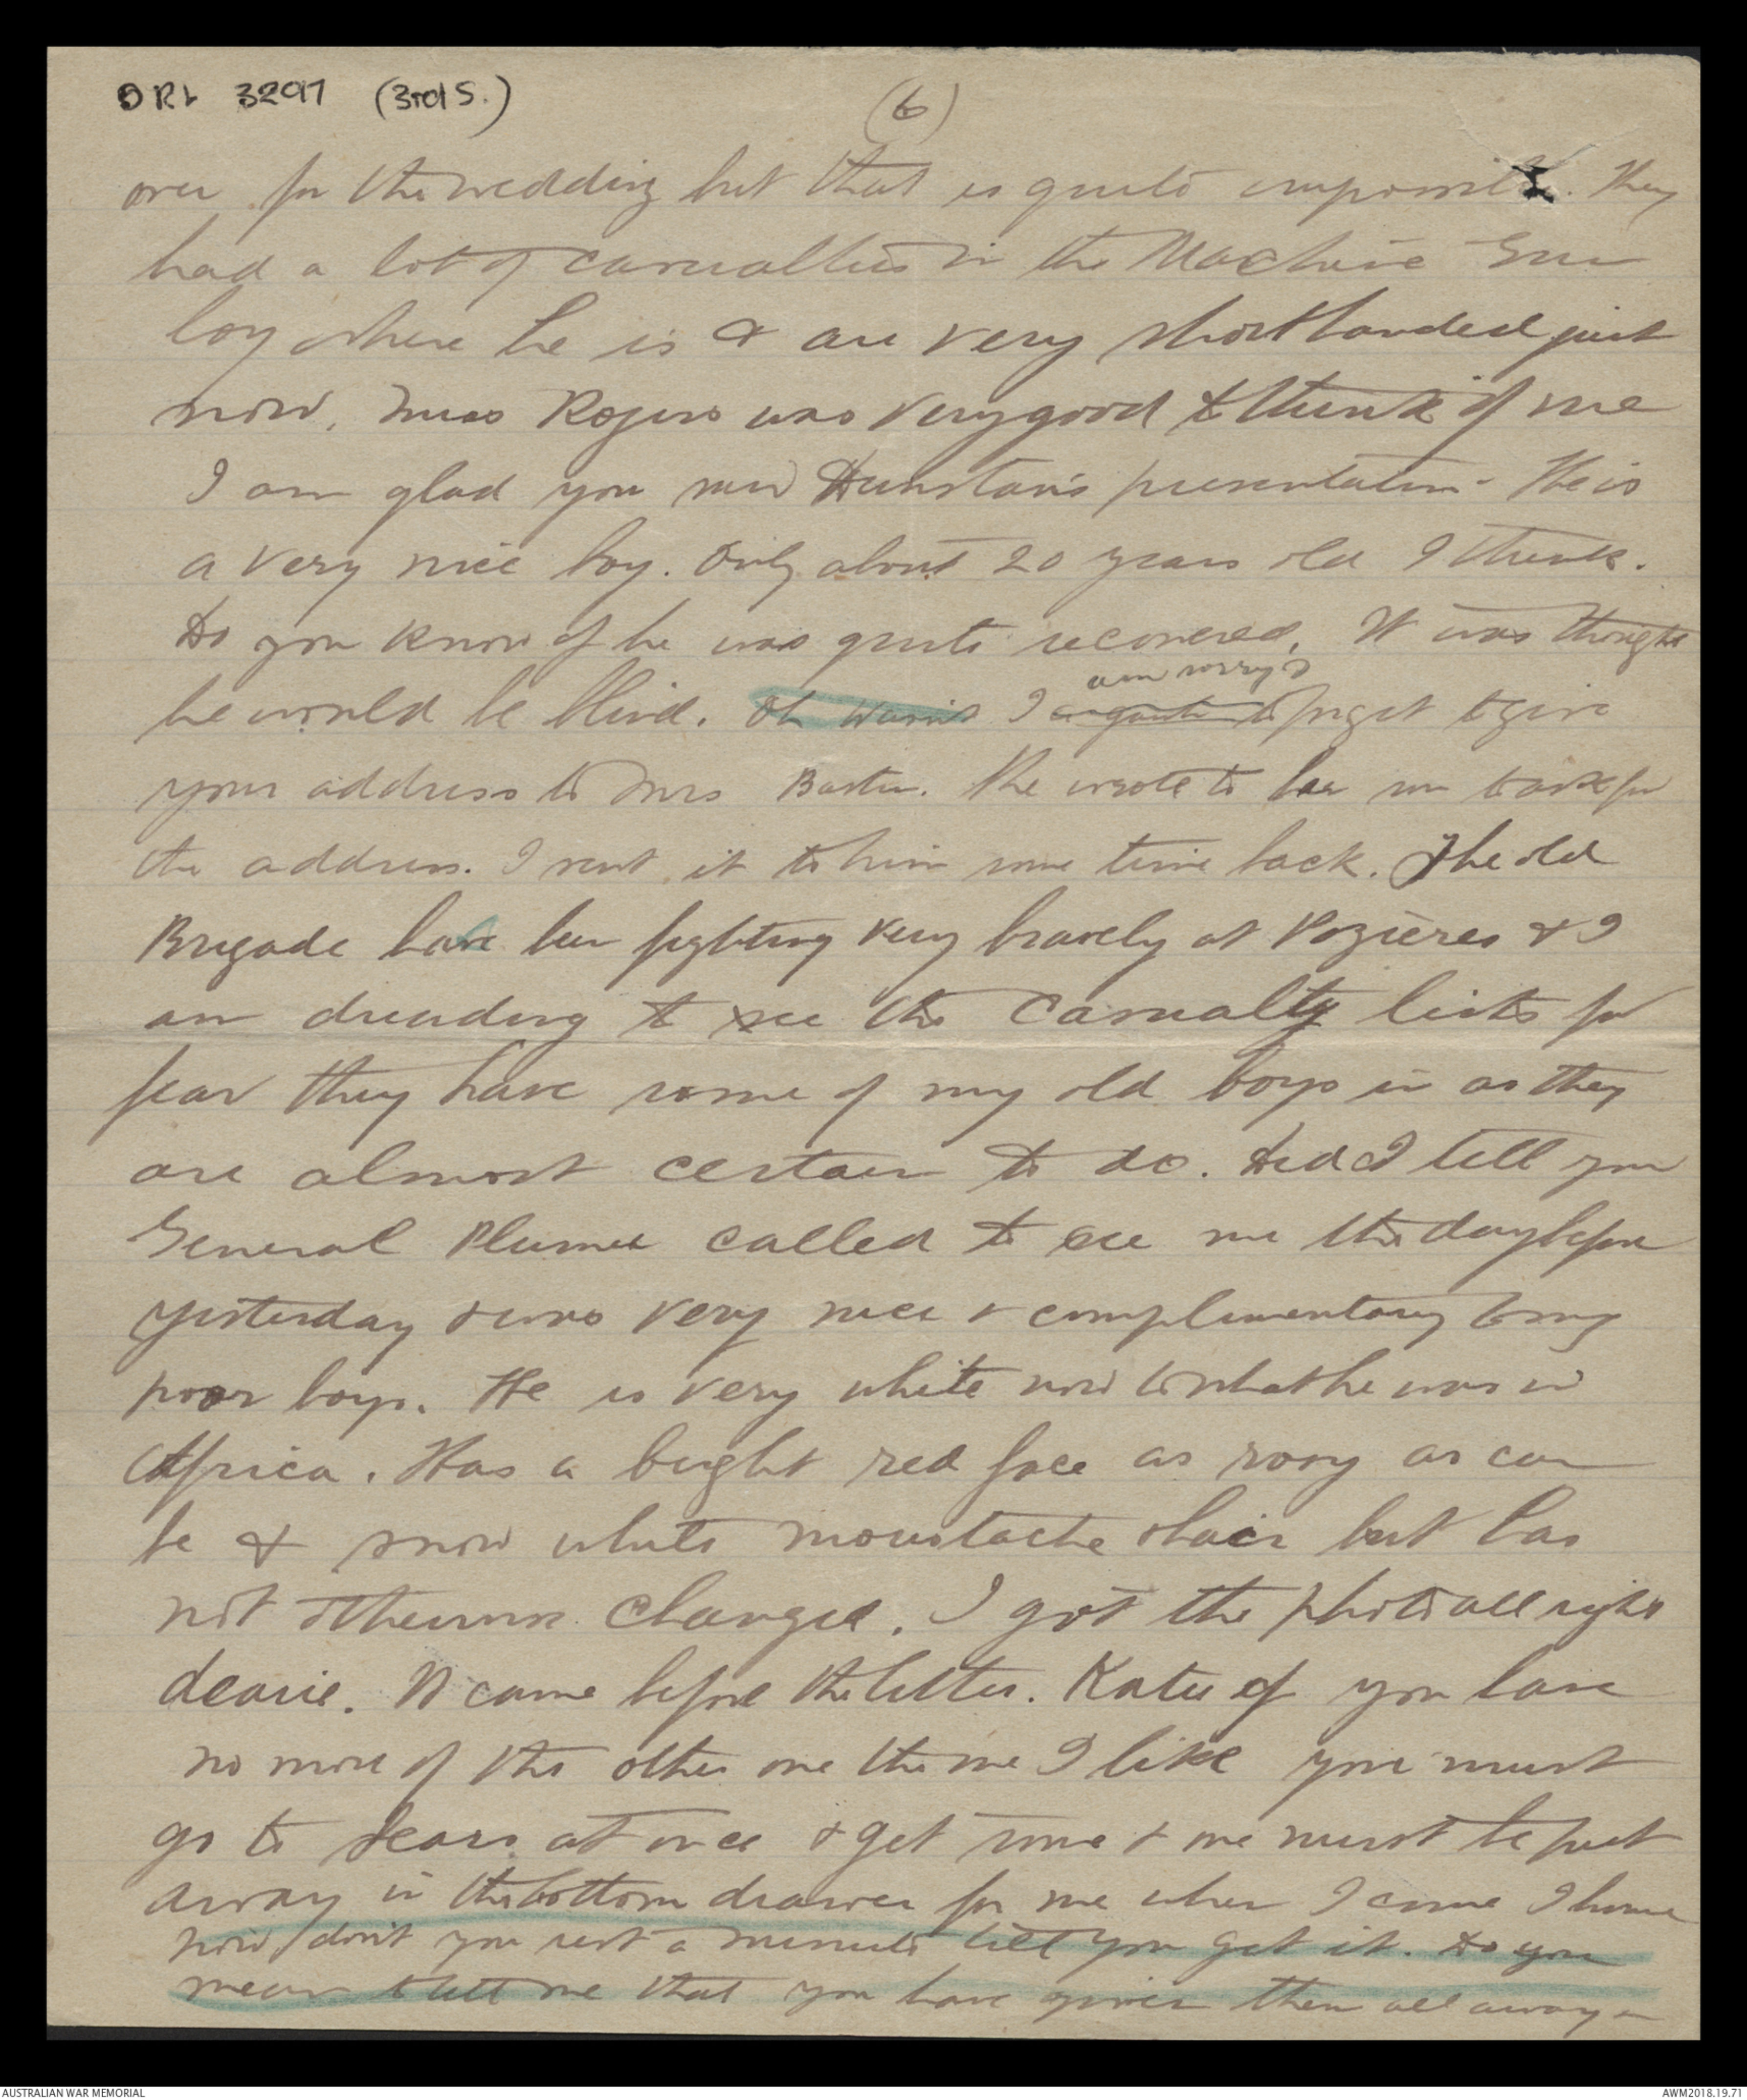 DRL 3297 (3rd S.)
(6)
over for the wedding but that is quite impossible. They
had a lot of casualties in the Machine Gun
Coy where he is & are very short handed just
now. Miss Rogers was very good to think of me
I am glad you saw Dunstan's presentation - He is
a very nice boy. Only about 20 years old I think.
Do you know if he was quite recovered. It was thought
he would be blind. Oh I am sorry I forgot to give
your address to Mrs Barton. He wrote to me to ask for
the address. I sent it to him some time back. The old
Brigade have been fighting very bravely at Pozières & I
am dreading to see the Casualty lists for
fear they have some of my old boys in as they
are almost certain to do. Did I tell you
General Plumer called to see me the day before
yesterday & was very nice & complimentary to my
poor boys. He is very white now to what he was in
Africa. Has a bright red face as rosy as can
be & snow white moustache & hair but has
not otherwise changed. I got the photo all right
dearie. It came before the letter. Katie if you have
no more of the other one the one I like you must
go to Sears at once & get some & one must be put
away in the bottom drawer for me when I come home
now don't you rest a minute till you get it. Do you
mean to tell me that you have given them all away
AUSTRALIAN WAR MEMORIAL
AWM2018.19.71